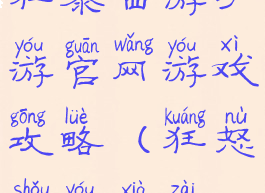 yóu guān wǎng yóu xì
游官网游戏
gōng lüè kuáng nù
攻略(狂怒
shǒu yóu xià zài